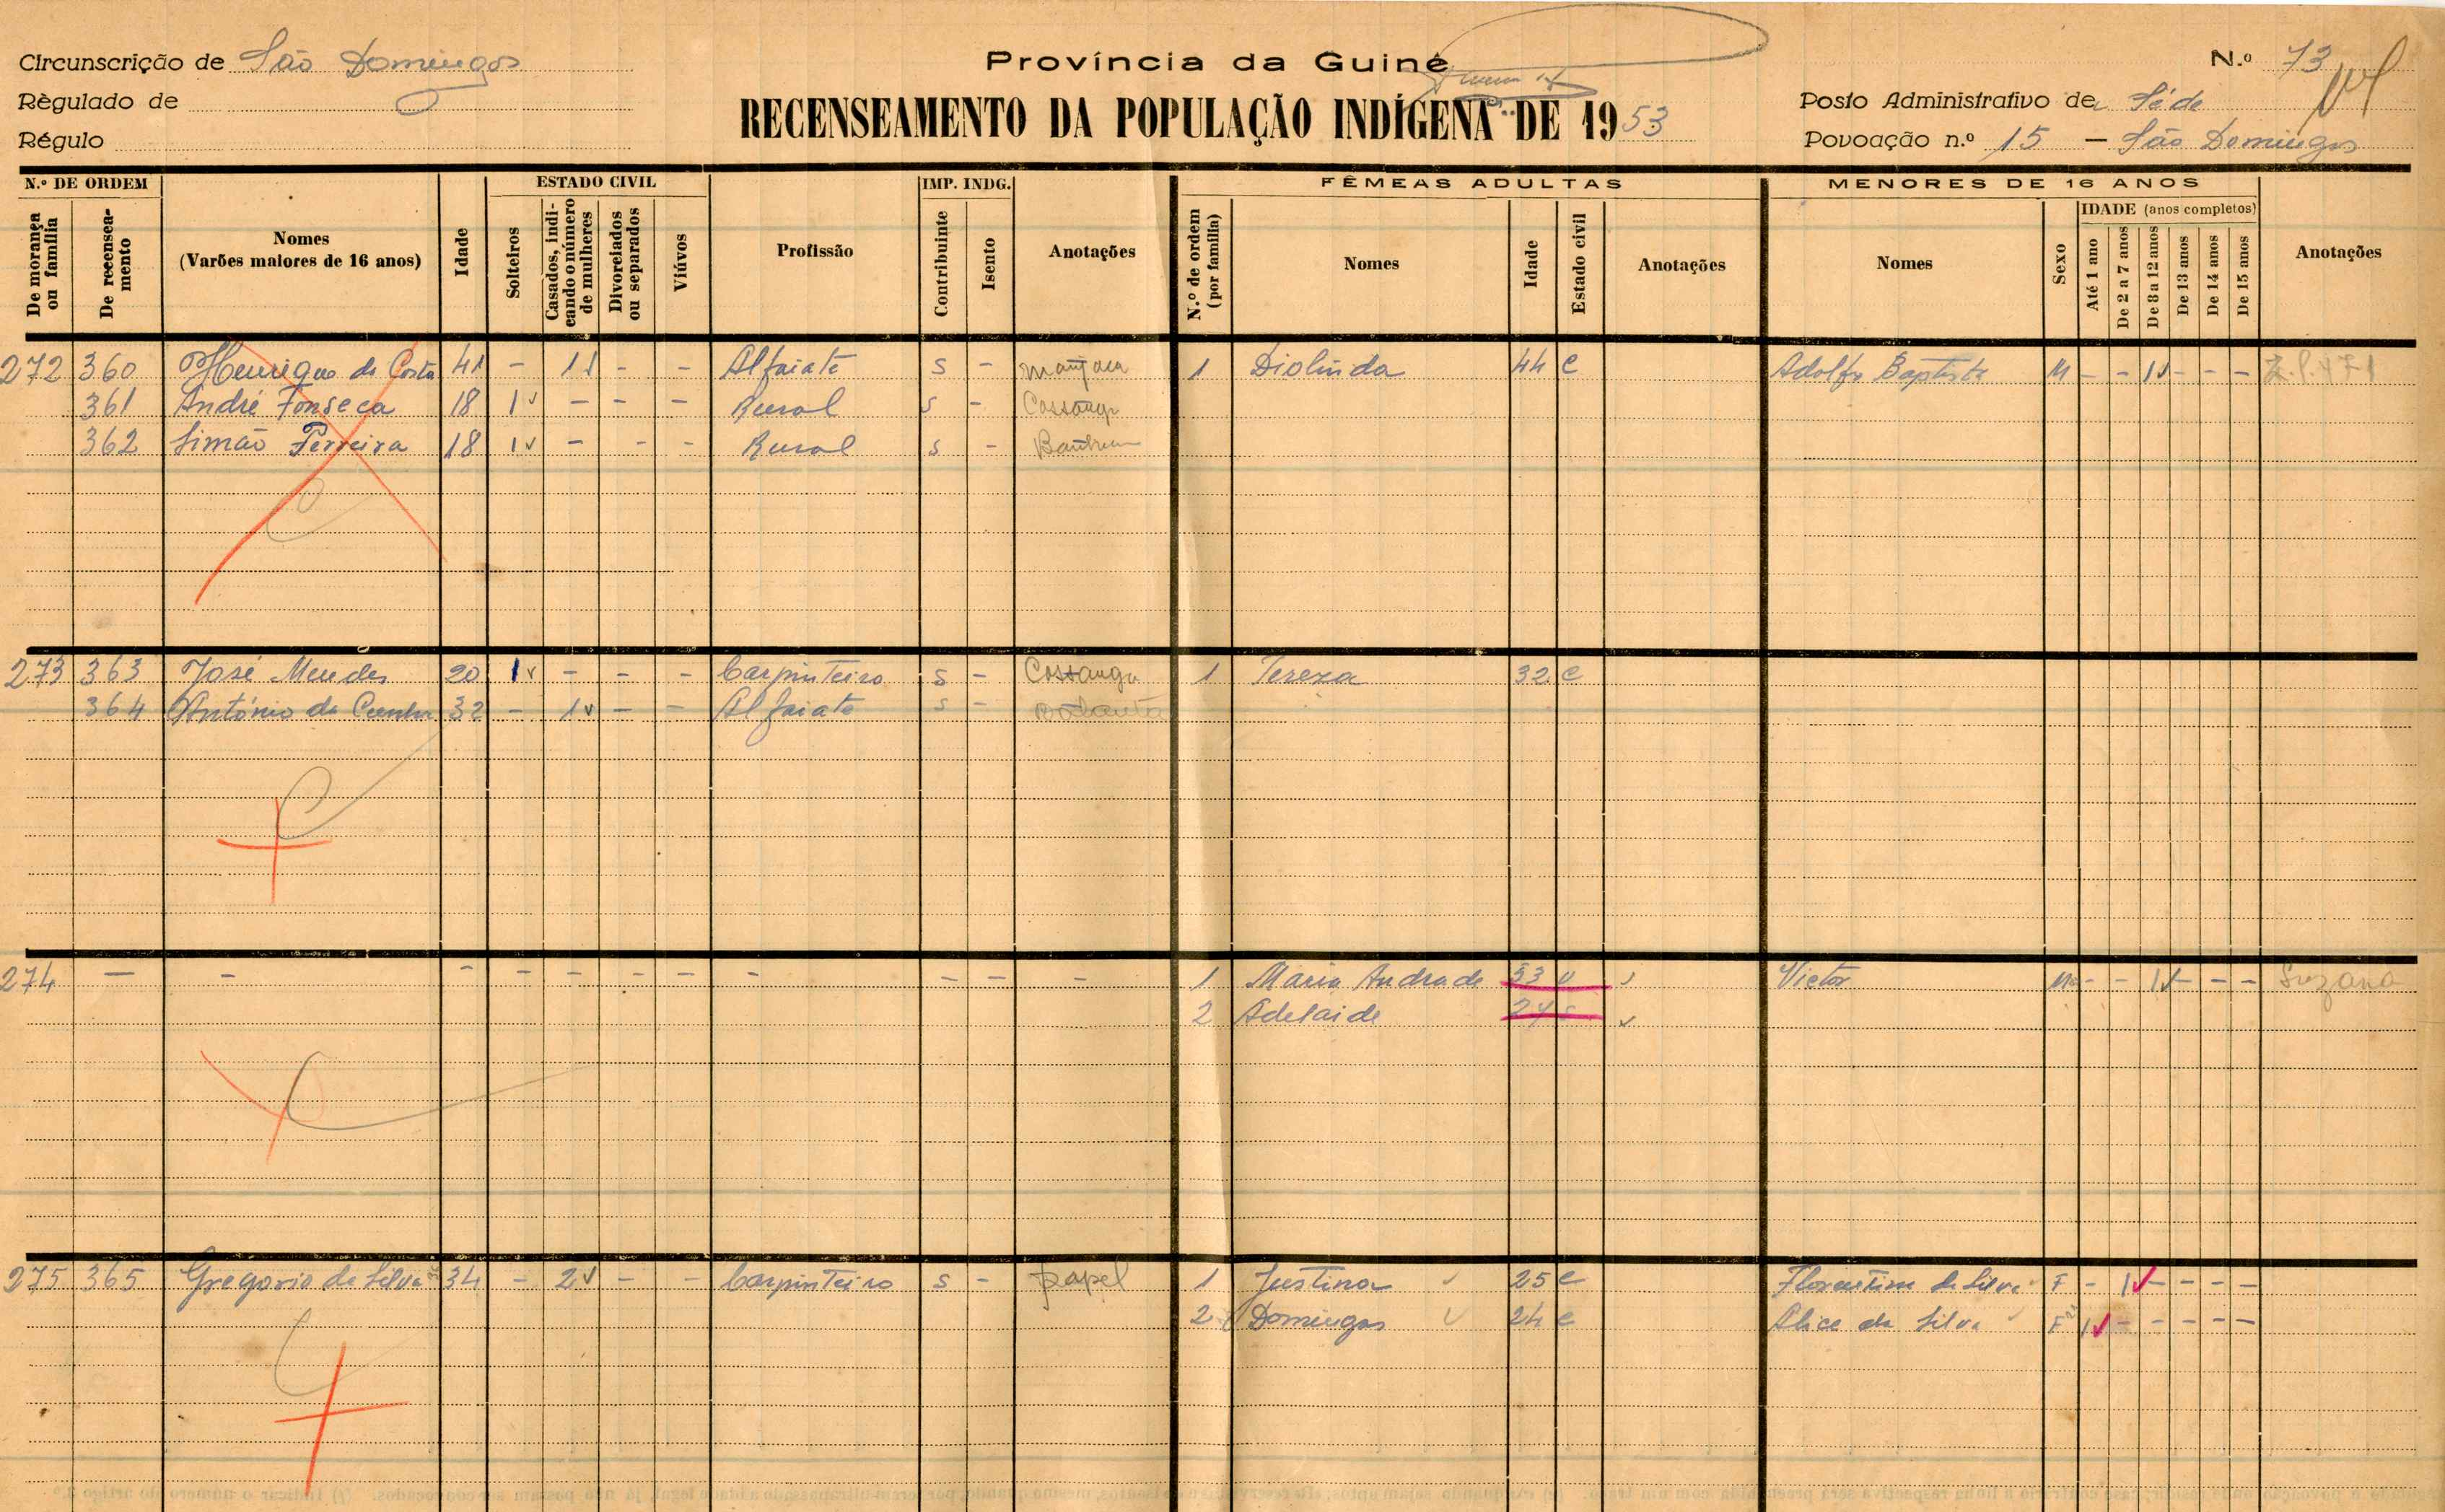 Circunscrição de São Domingos
Règulado de
Régulo
Província da Guiné
RECENSEAMENTO DA POPULAÇÃO INDÍGENA DE 1953
N.º 73
Posto Administrativo de Séde
Povoação n.º 15 — São Domingos
N.º DE ORDEM
De morança ou família
De recenseamento
Nomes
(Varões maiores de 16 anos)
Idade
ESTADO CIVIL
Solteiros
Casados, indicando o número de mulheres
Divorciados ou separados
Viúvos
Profissão
IMP. INDG.
Contribuinte
Isento
Anotações
FÊMEAS ADULTAS
N.º de ordem (por família)
Nomes
Idade
Estado civil
Anotações
MENORES DE 16 ANOS
Nomes
Sexo
IDADE (anos completos)
Até 1 ano
De 2 a 7 anos
De 8 a 12 anos
De 13 anos
De 14 anos
De 15 anos
Anotações
272 360 Henrique da Costa 41 - 1 - - Alfaiate S - 1 Diolinda 44 C Adolfo Baptista M - - 1 - - -
361 André Fonseca 18 1 - - - Rural S - Cassanga
362 Simão Ferreira 18 1 - - - Rural S -
273 363 José Mendes 20 1 - - - Carpinteiro S - Cassanga 1 Tereza 32 C
364 António da Cunha 32 - 1 - - Alfaiate S -
274 — - - - - - - - - - - 1 Maria Andrade 53 V Victor M - - 1 - - - Suzana
2 Adelaide 24 S
275 365 Gregorio da Silva 34 - 2 - - Carpinteiro S - papel 1 Justina 25 C Florentina da Silva F - 1 - - - -
2 Domingas 24 C Alice da Silva F 1 - - - - -